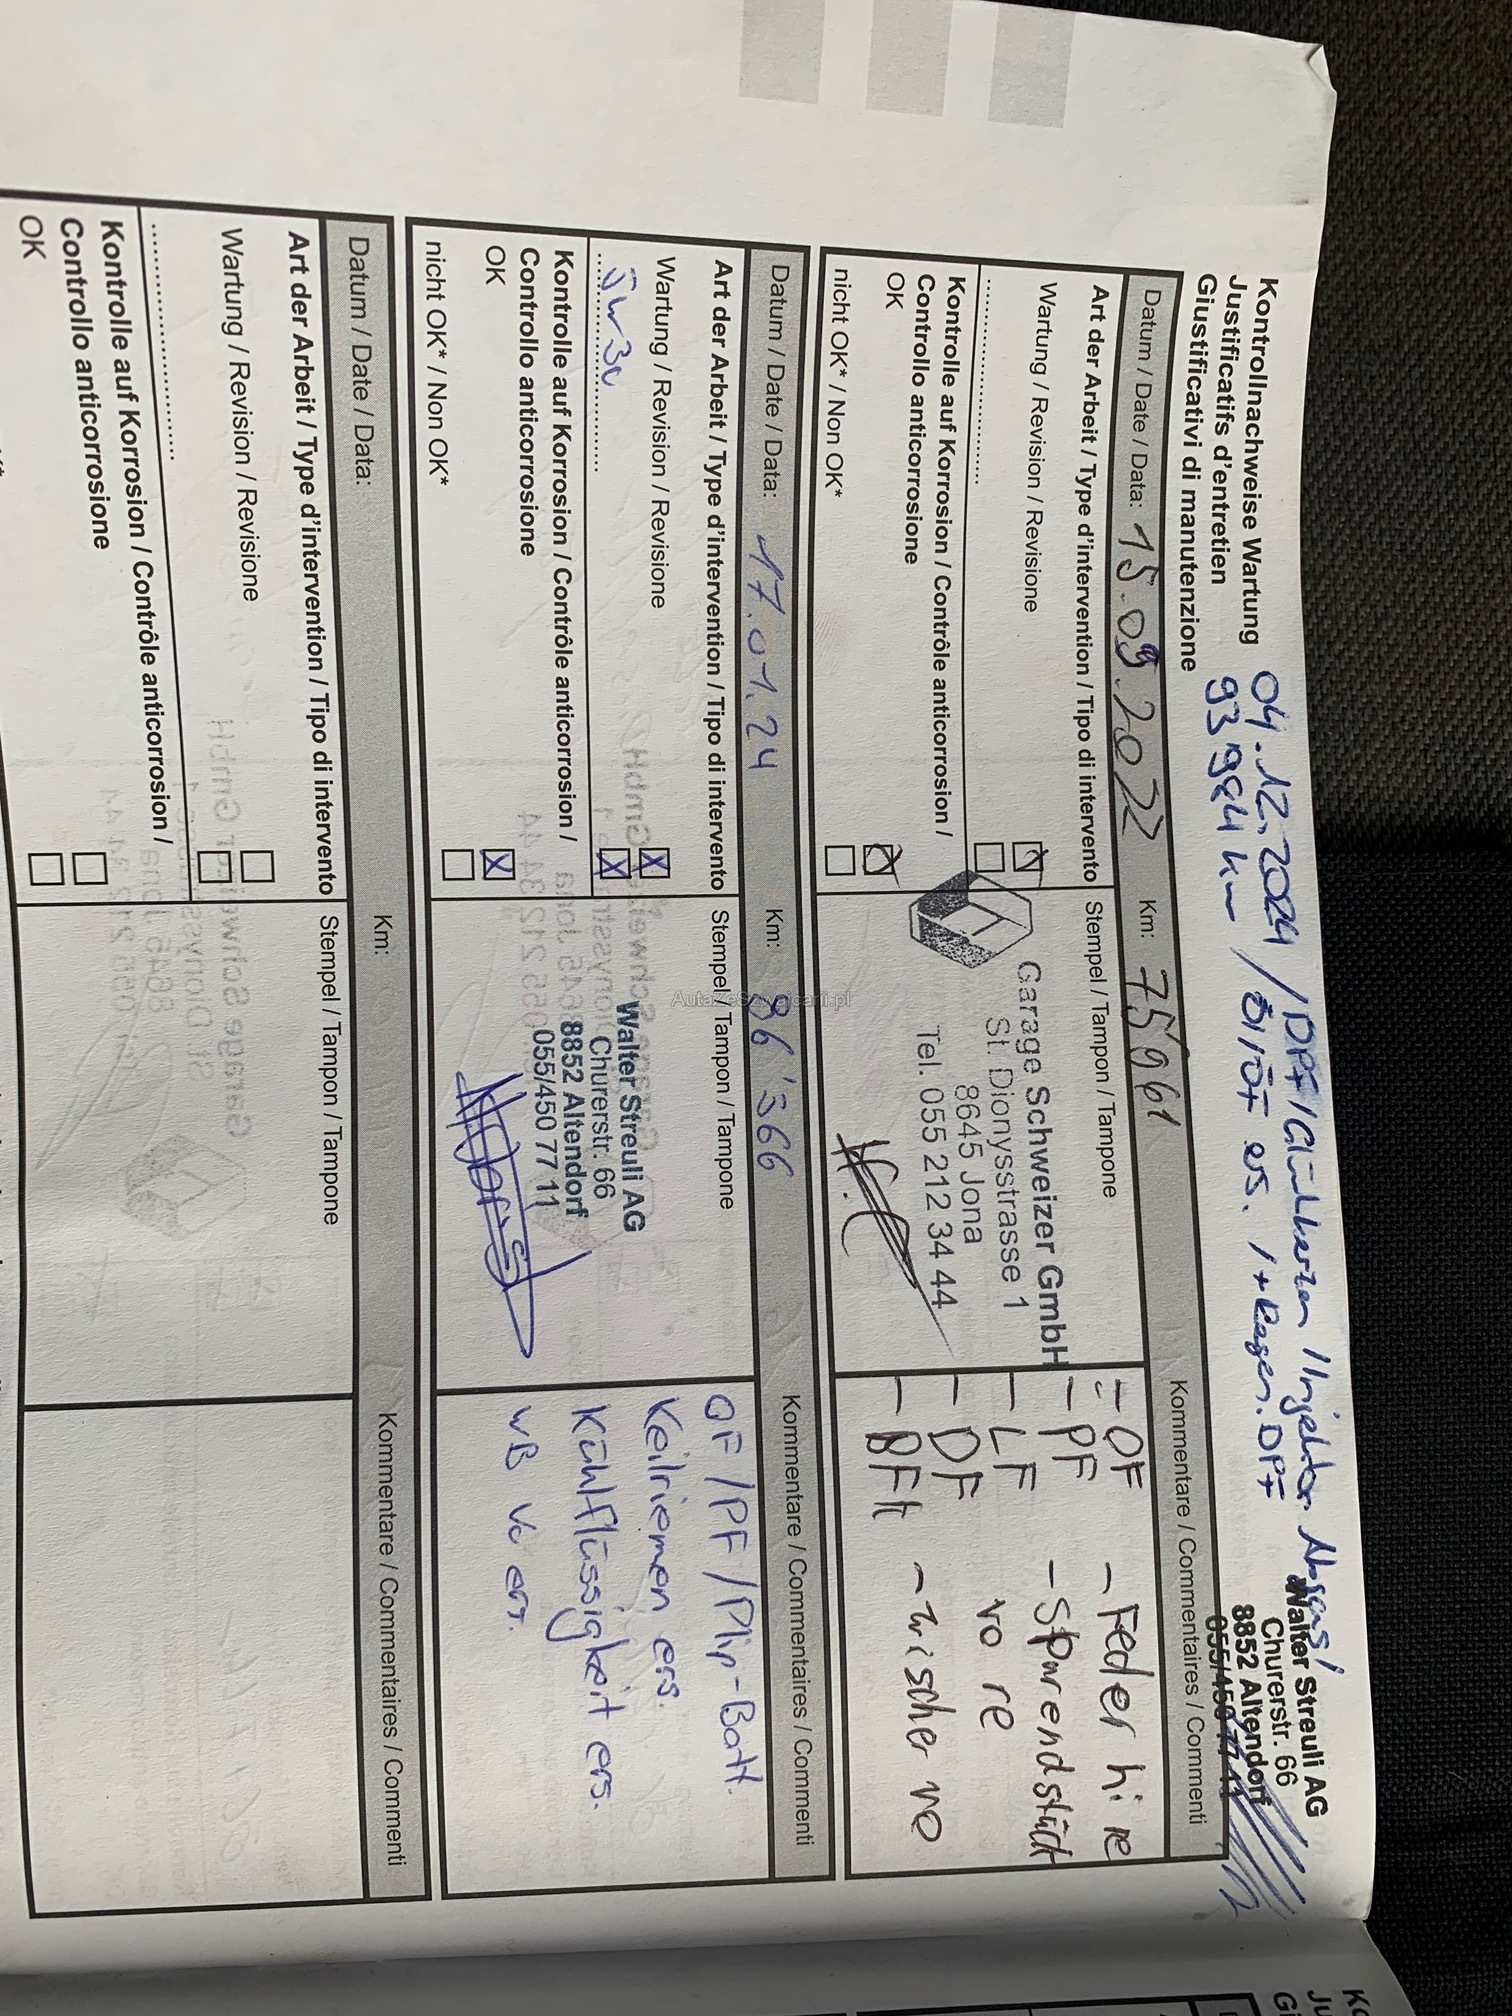 Kontrollnachweise Wartung
Justificatifs d'entretien
Giustificativi di manutenzione
04.12.2024 / DPF / Glühkerzen / Injektor
93'984 km / Öl / ÖF ers. / + Regen. DPF
Walter Streuli AG
Churerstr. 66
8852 Altendorf
055/450 77 11
Datum / Date / Data: 15.09.2022 Km: 75961 Kommentare / Commentaires / Commenti
Art der Arbeit / Type d'intervention / Tipo di intervento
Wartung / Revision / Revisione
Kontrolle auf Korrosion / Contrôle anticorrosion /
Controllo anticorrosione
OK
nicht OK* / Non OK*
Stempel / Tampon / Tampone
Garage Schweizer GmbH
St. Dionysstrasse 1
8645 Jona
Tel. 055 212 34 44
- ÖF - Feder hi re
- PF - Spurendstück
- LF vo re
- DF
- BFl - wischer vo
Datum / Date / Data: 17.01.24 Km: 86'366 Kommentare / Commentaires / Commenti
Art der Arbeit / Type d'intervention / Tipo di intervento
Wartung / Revision / Revisione
5W30
Kontrolle auf Korrosion / Contrôle anticorrosion /
Controllo anticorrosione
OK
nicht OK* / Non OK*
Stempel / Tampon / Tampone
Walter Streuli AG
Churerstr. 66
8852 Altendorf
055/450 77 11
ÖF / PF / Plip-Batt.
Keilriemen ers.
Kühlflüssigkeit ers.
WB vo ers.
AutazeSzwajcarii.pl
Datum / Date / Data: Km: Kommentare / Commentaires / Commenti
Art der Arbeit / Type d'intervention / Tipo di intervento
Wartung / Revision / Revisione
Kontrolle auf Korrosion / Contrôle anticorrosion /
Controllo anticorrosione
OK
Stempel / Tampon / Tampone